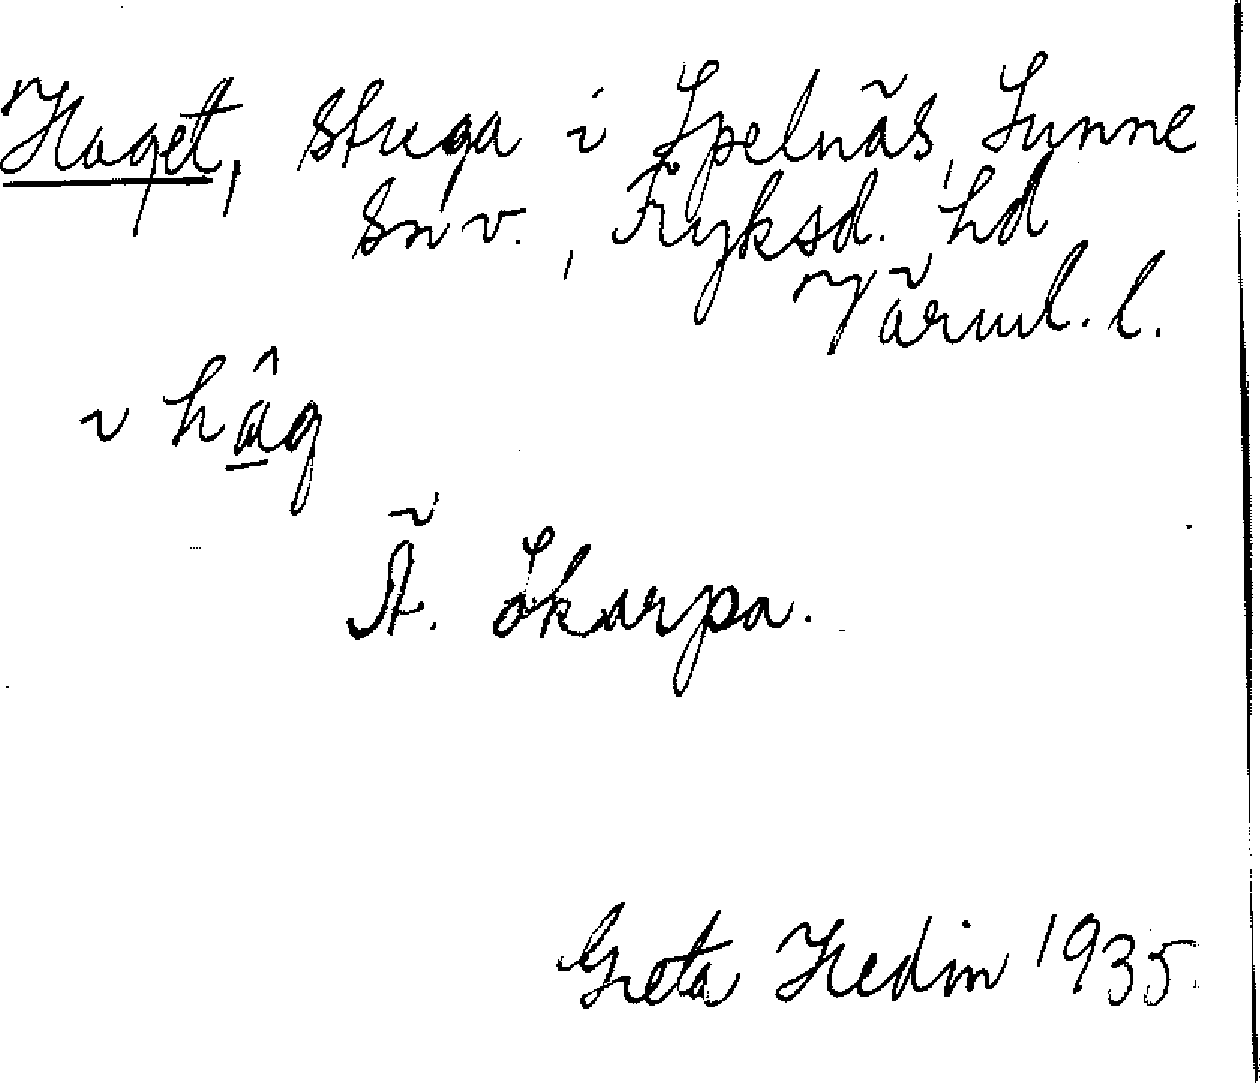 Haget, stuga i Spelnäs, Sunne
sn v., Fryksd. hd
Värml. l.
i hâg
Ä. Skarpa.
Greta Hedin 1935.